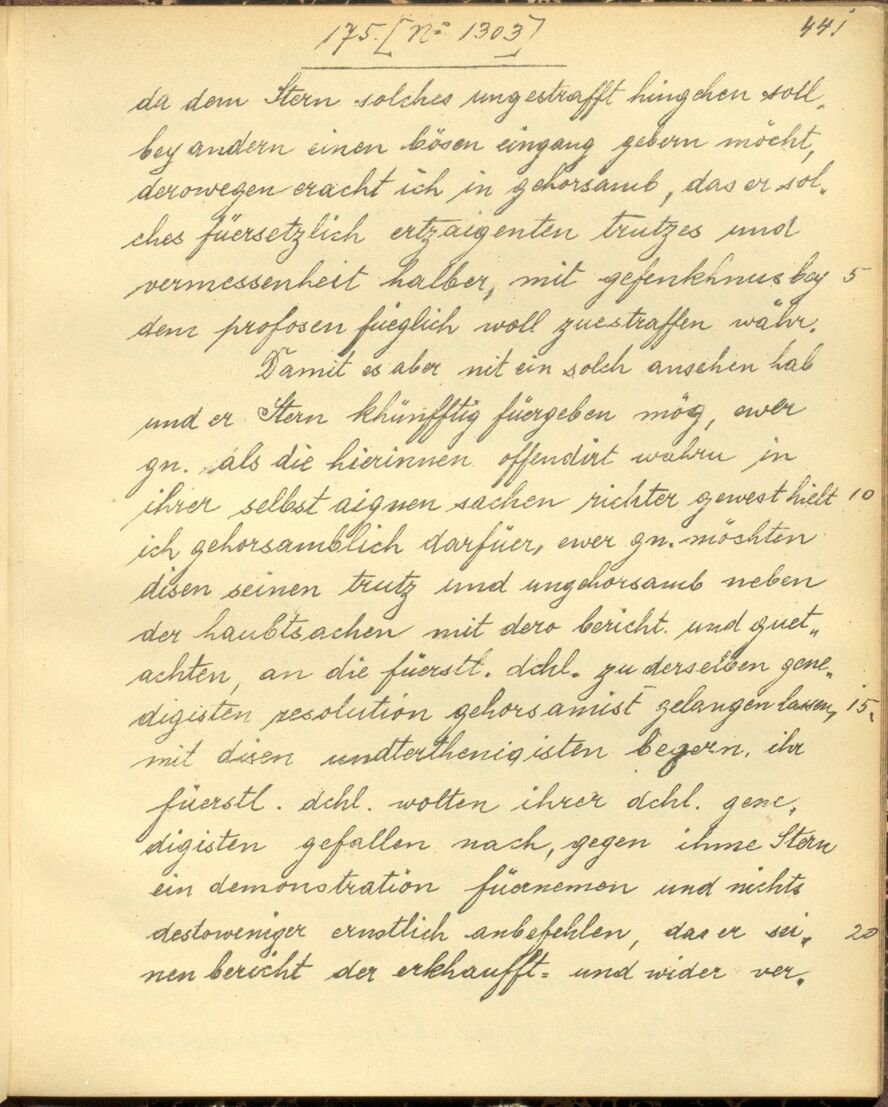 175. [No 1303]
441
da dem Stern solches ungestrafft hingehen soll,
bey andern einen bösen eingang gebern möcht,
derowegen eracht ich in gehorsamb, das er sol„
ches füersetzlich ertzaigenten trutzes und
vermessenheit halber, mit gefenkhnus bey 5
dem profosen füeglich woll zuestraffen währ.
Damit es aber nit ein solch ansehen hab
und er Stern khünfftig füergeben mög, ewer
gn. als die hierinnen offendirt wahrn in
ihrer selbst aignen sachen richter gewest hielt 10
ich gehorsamblich darfüer, ewer gn. möchten
disen seinen trutz und ungehorsamb neben
der haubtsachen mit dero bericht. und guet„
achten, an die füerstl. dchl. zu derselben gene„
digisten resolution gehorsamist gelangen lassen, 15.
mit disen undterthenigisten begern, ihr
füerstl. dchl. wolten ihrer dchl. gene„
digisten gefallen nach, gegen ihme Stern
ein demonstration füernemen und nichts
destoweniger ernstlich anbefehlen, das er sei„ 20
nen bericht der erkhaufft= und wider ver„